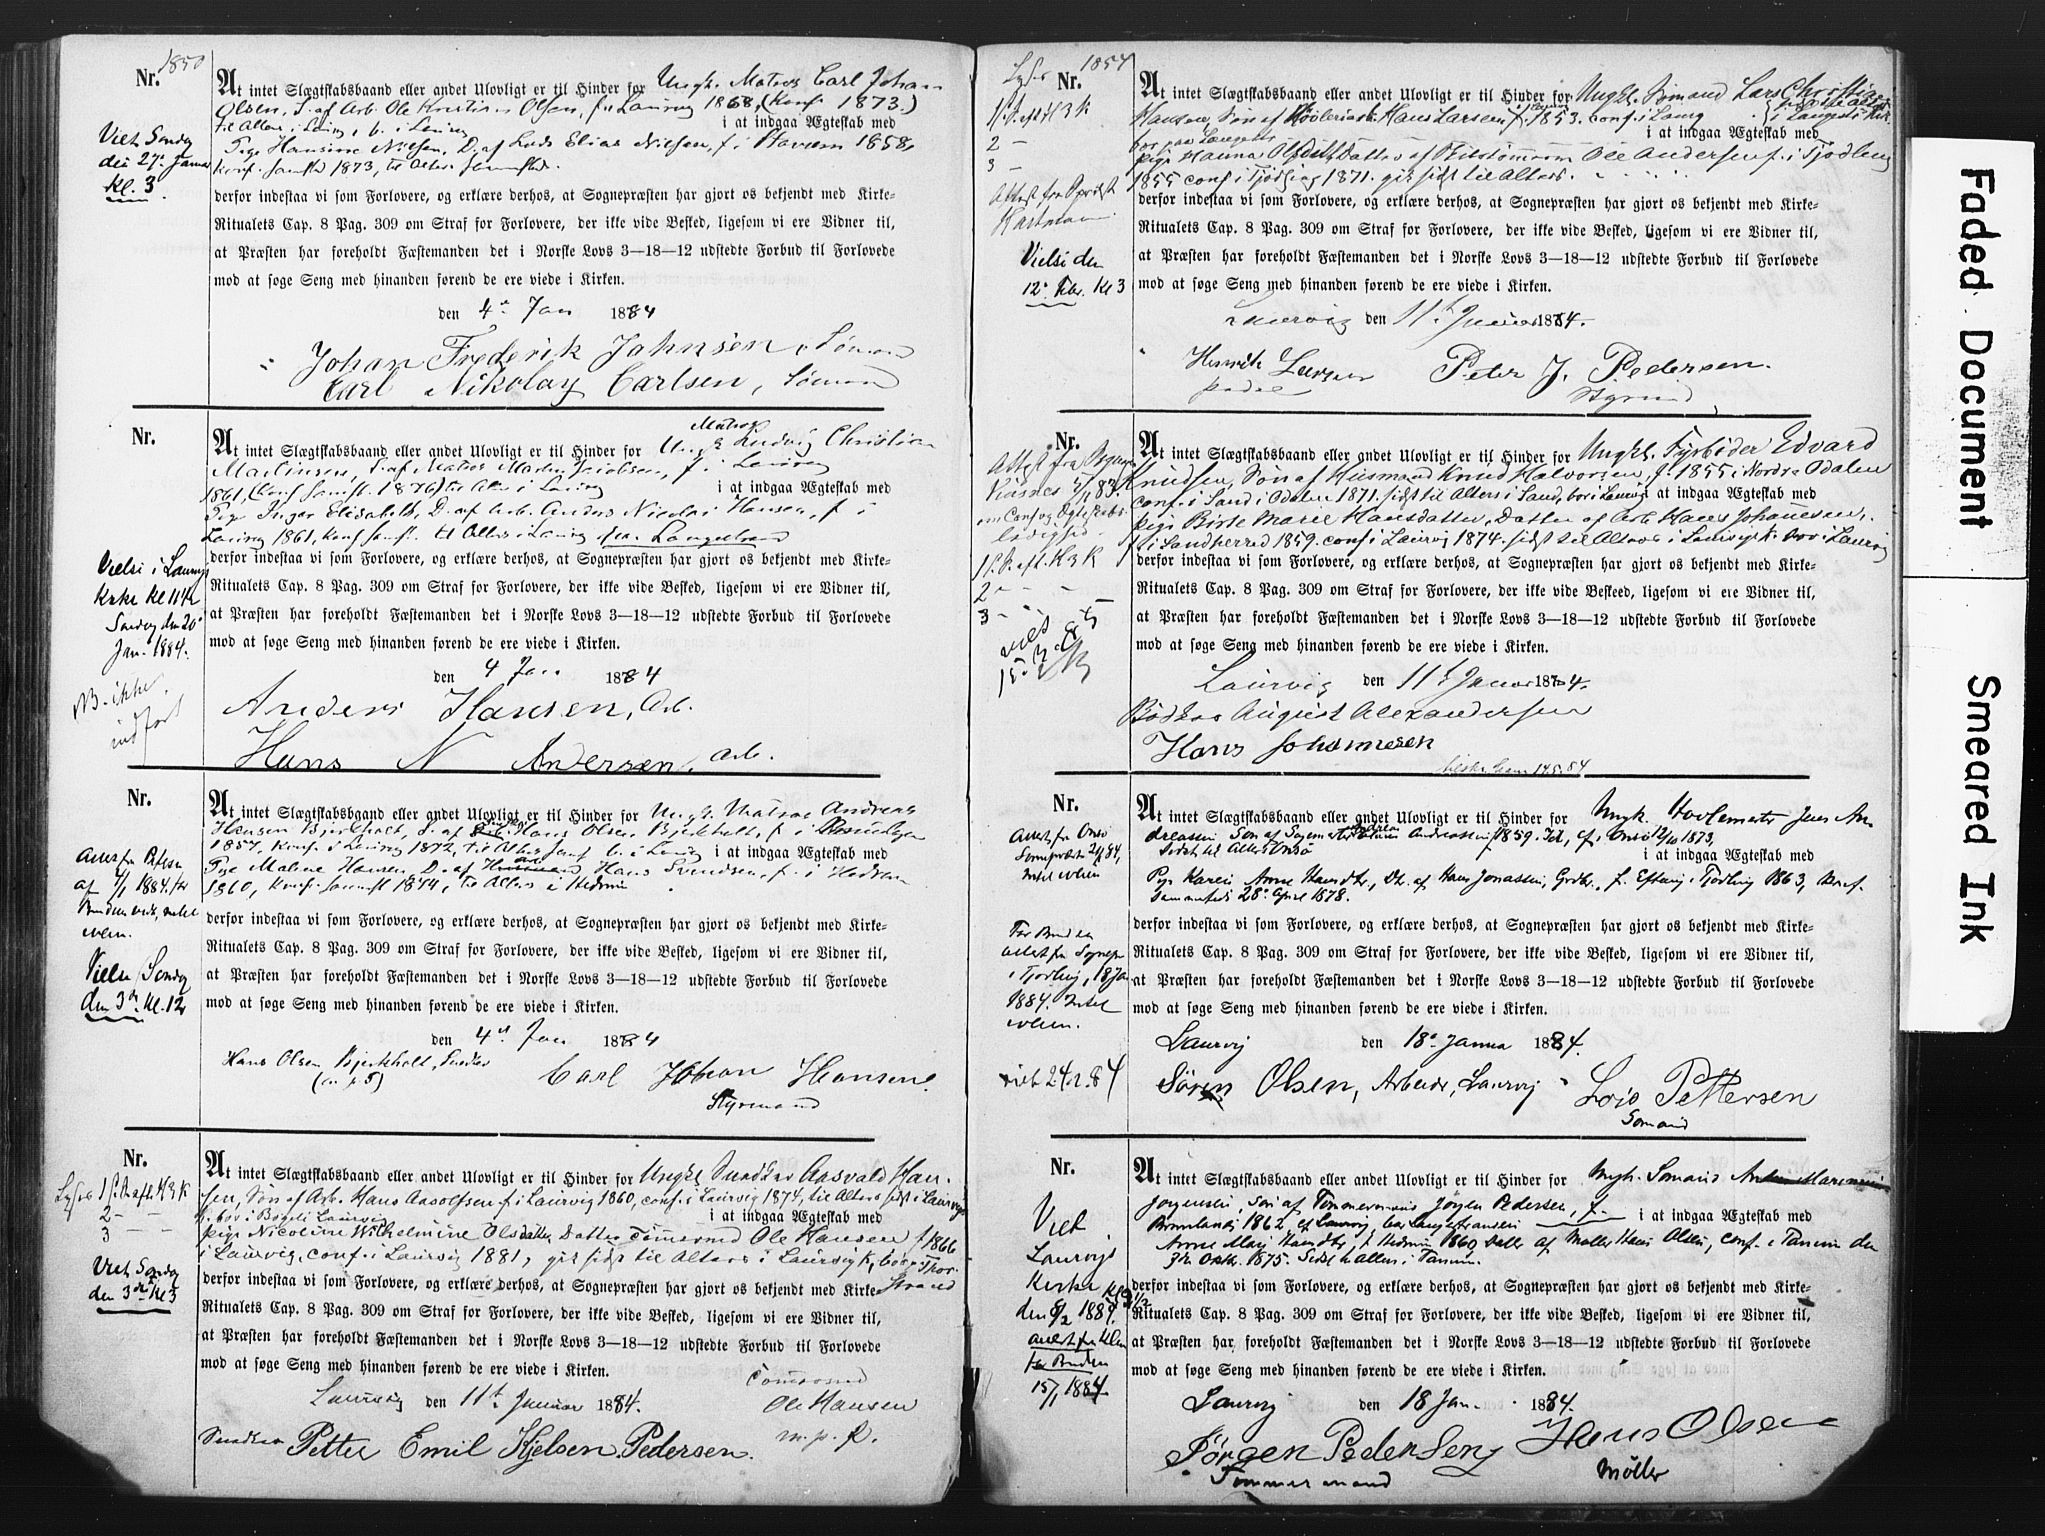 1850
Nr.
At intet Slægtskabsbaand eller andet Ulovligt er til Hinder for Ungk. Matros Carl Johan
Olsen, S. af Arb. Ole Kristian Olsen, f. i Laurvig 1858, (Konf. 1873.)
til Alters i Laurvig, b. i Laurvig i at indgaa Ægteskab med
Pige Hansine Nielsen, D. af Elias Nielsen, f. i Stavern 1858,
Konf. 1873, til Alters
Viet Søndag
den 27. Januar
Kl. 3.
derfor indestaa vi som Forlovere, og erklære derhos, at Sognepræsten har gjort os bekjendt med Kirke-
Ritualets Cap. 8 Pag. 309 om Straf for Forlovere, der ikke vide Besked, ligesom vi ere Vidner til,
at Præsten har foreholdt Fæstemanden det i Norske Lovs 3—18—12 udstedte Forbud til Forlovede
mod at søge Seng med hinanden førend de ere viede i Kirken.
den 4. Jan 1884
Johan Frederik Johnsen, Sømand
Carl Nikolay Carlsen, Sømand
Nr.
Matros
At intet Slægtskabsbaand eller andet Ulovligt er til Hinder for Ungk. Ludvig Christian
Martinsen, S. af Matros Martin Jacobsen, f. i Laurvig
1861, (Konf. samst. 1876) til Alters i Laurvig i at indgaa Ægteskab med
Pige Inger Elisabeth, D. af Arb. Anders Nicolai Hansen, f. i
Laurvig 1861, Konf. samst. til Alters i Laurvig Langestrand
Vielse i Laurvigs
Kirke Kl 11 1/2
Søndag den 20
Jan. 1884.
NB. ikke
indført
derfor indestaa vi som Forlovere, og erklære derhos, at Sognepræsten har gjort os bekjendt med Kirke-
Ritualets Cap. 8 Pag. 309 om Straf for Forlovere, der ikke vide Besked, ligesom vi ere Vidner til,
at Præsten har foreholdt Fæstemanden det i Norske Lovs 3—18—12 udstedte Forbud til Forlovede
mod at søge Seng med hinanden førend de ere viede i Kirken.
den 4 Jan 1884
Anders Hansen, Arb.
Hans N Andersen, arb.
Nr.
At intet Slægtskabsbaand eller andet Ulovligt er til Hinder for Ungk. Matros Andreas
Hansen Bjerkholt, S. af Hans Olsen Bjerkholt, f. i
1857, Konf. i Laurvig 1872, til Alters samst. b. i Laurvig i at indgaa Ægteskab med
Pige Maline Hansen, D. af Hans Svendsen, f. i Hedrum
1860, Konf. samst 1874, til Alters i Hedrum
af 1/1 1884 for
Bruden vedr. intet
iveien.
Vielse Søndag
den 3die Kl. 12
derfor indestaa vi som Forlovere, og erklære derhos, at Sognepræsten har gjort os bekjendt med Kirke-
Ritualets Cap. 8 Pag. 309 om Straf for Forlovere, der ikke vide Besked, ligesom vi ere Vidner til,
at Præsten har foreholdt Fæstemanden det i Norske Lovs 3—18—12 udstedte Forbud til Forlovede
mod at søge Seng med hinanden førend de ere viede i Kirken.
den 4de Jan 1884
Hans Olsen Bjerkholt, Snedker
(m. p. P.)
Carl Johan Hansen.
Styrmand
Nr.
At intet Slægtskabsbaand eller andet Ulovligt er til Hinder for Ungk. Snedker Aasvald Han-
sen, Søn af Arb. Hans Aasolfsen f. i Laurvig 1860, conf. i Laurvig 1874, til Alters sidst i Laurvigs
k. bor i Laurvig i at indgaa Ægteskab med
pige Nicoline Wilhelmine Olsdatter, Datter Tømmermd Ole Hansen f 1866
i Laurvig, conf. i Laurvig 1881, gik sidst til Alters i Laurvig k, bor
Strand
Lyses 1 S. P. aft. H 3 K
2 — —
3 — —
Viet Søndag
den 3die Kl 3
derfor indestaa vi som Forlovere, og erklære derhos, at Sognepræsten har gjort os bekjendt med Kirke-
Ritualets Cap. 8 Pag. 309 om Straf for Forlovere, der ikke vide Besked, ligesom vi ere Vidner til,
at Præsten har foreholdt Fæstemanden det i Norske Lovs 3—18—12 udstedte Forbud til Forlovede
mod at søge Seng med hinanden førend de ere viede i Kirken.
Laurvig den 11te Januar 1884.
Tømmermd
Ole Hansen
m. p. P.
Snedker Petter Emil Kjelsen Pedersen.
1854
Lyses
Nr.
At intet Slægtskabsbaand eller andet Ulovligt er til Hinder for Ungk. Sømand Lars Christian
Hansen, Søn af Høvleriarb. Hans Larsen f. 1853. conf. i Laurvig
i at indgaa Ægteskab med
pige Hanna Olsdtr, Datter af Ole Andersen f. i Tjødling
1855 conf. i Tjødling 1871. gik sidst til Alters
1 S. P. eft H 3 K
2 —
3 —
Attest fra
Hartmann.
Vielse den
12. Febr. Kl 3
derfor indestaa vi som Forlovere, og erklære derhos, at Sognepræsten har gjort os bekjendt med Kirke-
Ritualets Cap. 8 Pag. 309 om Straf for Forlovere, der ikke vide Besked, ligesom vi ere Vidner til,
at Præsten har foreholdt Fæstemanden det i Norske Lovs 3—18—12 udstedte Forbud til Forlovede
mod at søge Seng med hinanden førend de ere viede i Kirken.
Laurvig den 11te Januar 1884.
Henrik Larsen Peter J. Pedersen.
Styrmd
Nr.
At intet Slægtskabsbaand eller andet Ulovligt er til Hinder for Ungk. Fyrbøder Edvard
Knudsen, Søn af Husmand Knud Halvorsen, f. 1855 i Nordre Odalen
conf. i Sand i Odalen 1871. sidst til Alters i Sand, bor i Laurvig i at indgaa Ægteskab med
pige Birte Marie Hansdatter, Datter af Arb. Hans Johannesen,
f. i Sandherred 1859. conf. i Laurvig 1874. sidst til Alters i Laurvig k. bor i Laurvig
Attest fra
om Conf og Ægteskabs-
ledighed.
1 S. P. aft. H 3 K
2 — —
3 —
viet
15.
derfor indestaa vi som Forlovere, og erklære derhos, at Sognepræsten har gjort os bekjendt med Kirke-
Ritualets Cap. 8 Pag. 309 om Straf for Forlovere, der ikke vide Beskeed, ligesom vi ere Vidner til,
at Præsten har foreholdt Fæstemanden det i Norske Lovs 3—18—12 udstedte Forbud til Forlovede
mod at søge Seng med hinanden førend de ere viede i Kirken.
Laurvig den 11te Januar 1884.
Bødker August Alexandersen
Hans Johannesen
14.5.84
Nr.
At intet Slægtskabsbaand eller andet Ulovligt er til Hinder for Ungk. Hovlemester Jens An-
dreassen Søn af Sagmester Andreassen f 1859. cf. i Onsø 12/10 1873,
Sidst til Alters Onsø i at indgaa Ægteskab med
Pige Karen Anne Hansdtr., Dtr. af Hans Jonassen, Grdbr. f. Efterny i Tjødling 1863, Konf.
sammesteds 28. April 1878.
Attest fra Onsø
Sognepræst 2/1 84,
Intet iveien
For Bruden
attest fra Sognepr
i Tjodling, 18 Jan
1884. Intet
iveien.
viet 24.2.84
derfor indestaa vi som Forlovere, og erklære derhos, at Sognepræsten har gjort os bekjendt med Kirke-
Ritualets Cap. 8 Pag. 309 om Straf for Forlovere, der ikke vide Besked, ligesom vi ere Vidner til,
at Præsten har foreholdt Fæstemanden det i Norske Lovs 3—18—12 udstedte Forbud til Forlovede
mod at søge Seng med hinanden førend de ere viede i Kirken.
Laurvig den 18. Janua 1884.
Søren Olsen, Arbeider, Laurvig Lois Pettersen
Sømand
Nr.
At intet Slægtskabsbaand eller andet Ulovligt er til Hinder for Ungk. Sømand Anton Marennius
Jørgensen, Søn af Tømmermand Jørgen Pedersen, f. i at indgaa Ægteskab med
Brunlanes 1862, cf Laurvig, bor Langestranden
Anne Marie Hansdtr, f. Hedrum 1860, Datter af Møller Hans Olsen, conf. i Tanum den
3die Oktbr. 1875. Sidst t. Alters i Tanum.
Viet
Laurvigs
Kirke
den 8/2 1884. Kl 3 1/2
attest fra
for Bruden
15/1 1884
derfor indestaa vi som Forlovere, og erklære derhos, at Sognepræsten har gjort os bekjendt med Kirke-
Ritualets Cap. 8 Pag. 309 om Straf for Forlovere, der ikke vide Besked, ligesom vi ere Vidner til,
at Præsten har foreholdt Fæstemanden det i Norske Lovs 3—18—12 udstedte Forbud til Forlovede
mod at søge Seng med hinanden førend de ere viede i Kirken.
Laurvig den 18 Jan. 1884.
Jørgen Pedersen, Hans Olsen
Tømmermand Møller
Faded Document
Smeared Ink